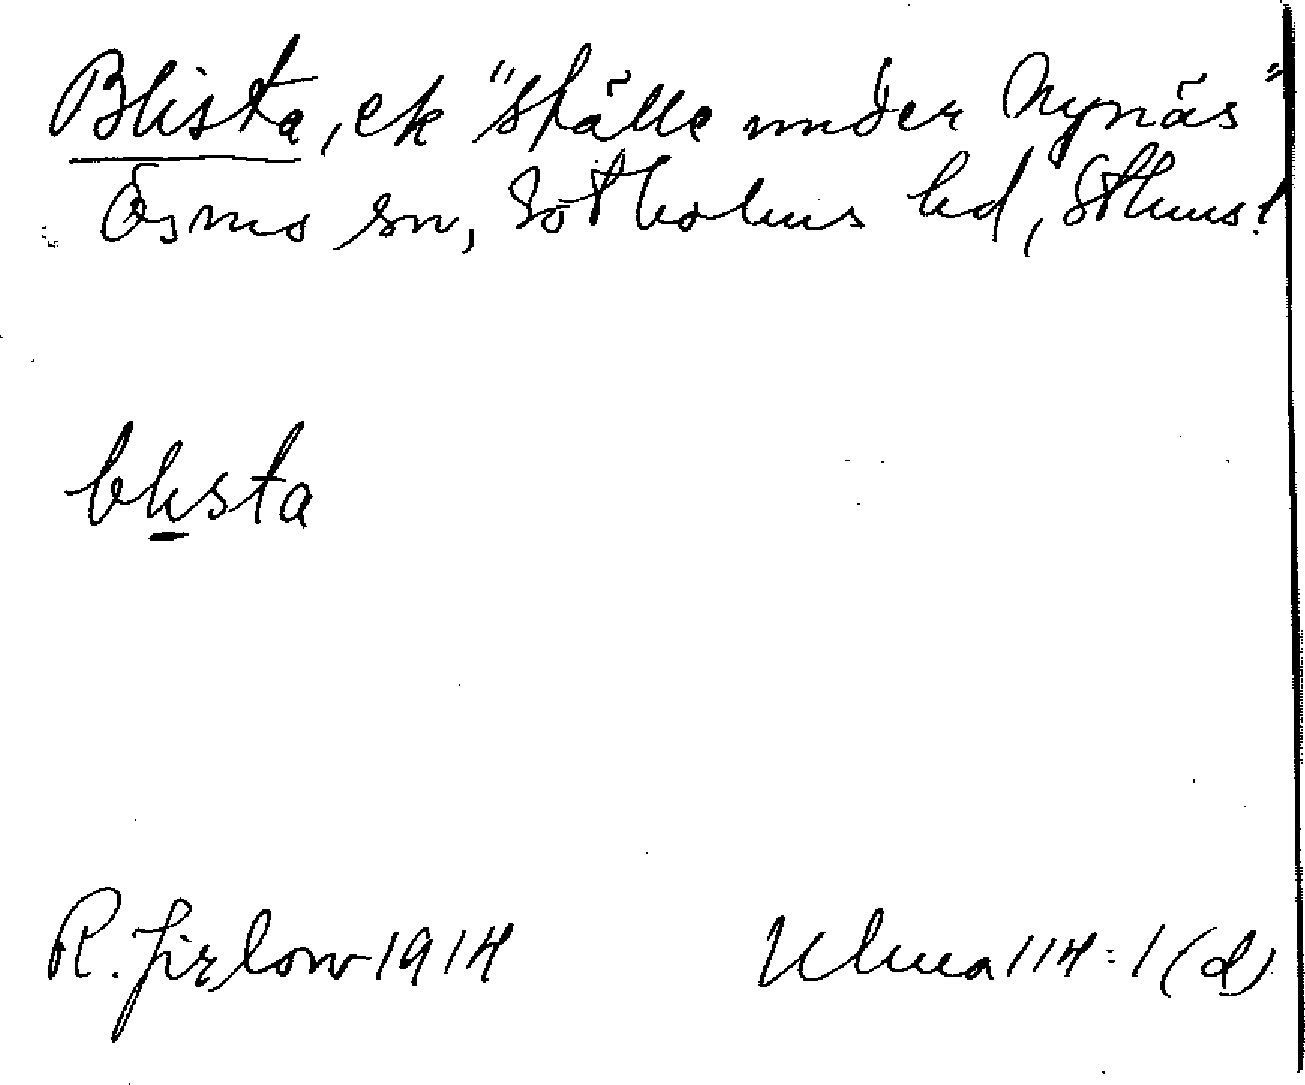 Blista, ek "ställe under Nynäs"
Ösmo sn, Sotholms hd, Sthms l
blista
R. Jirlow 1914
Ulma 114:1 (d)